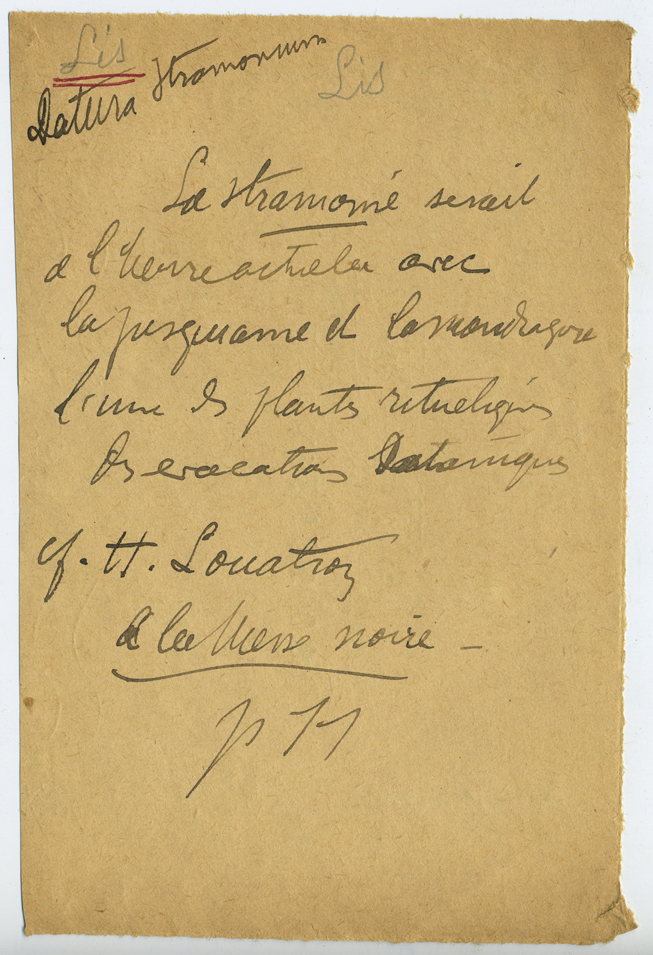 Lis
Datura stramonium
Lis
La stramoine serait
à l'heure actuelle avec
la jusquiame et la mandragore
l'une des plantes rituéliques
des évocations Sataniques
cf. H.
à la Messe noire –
p